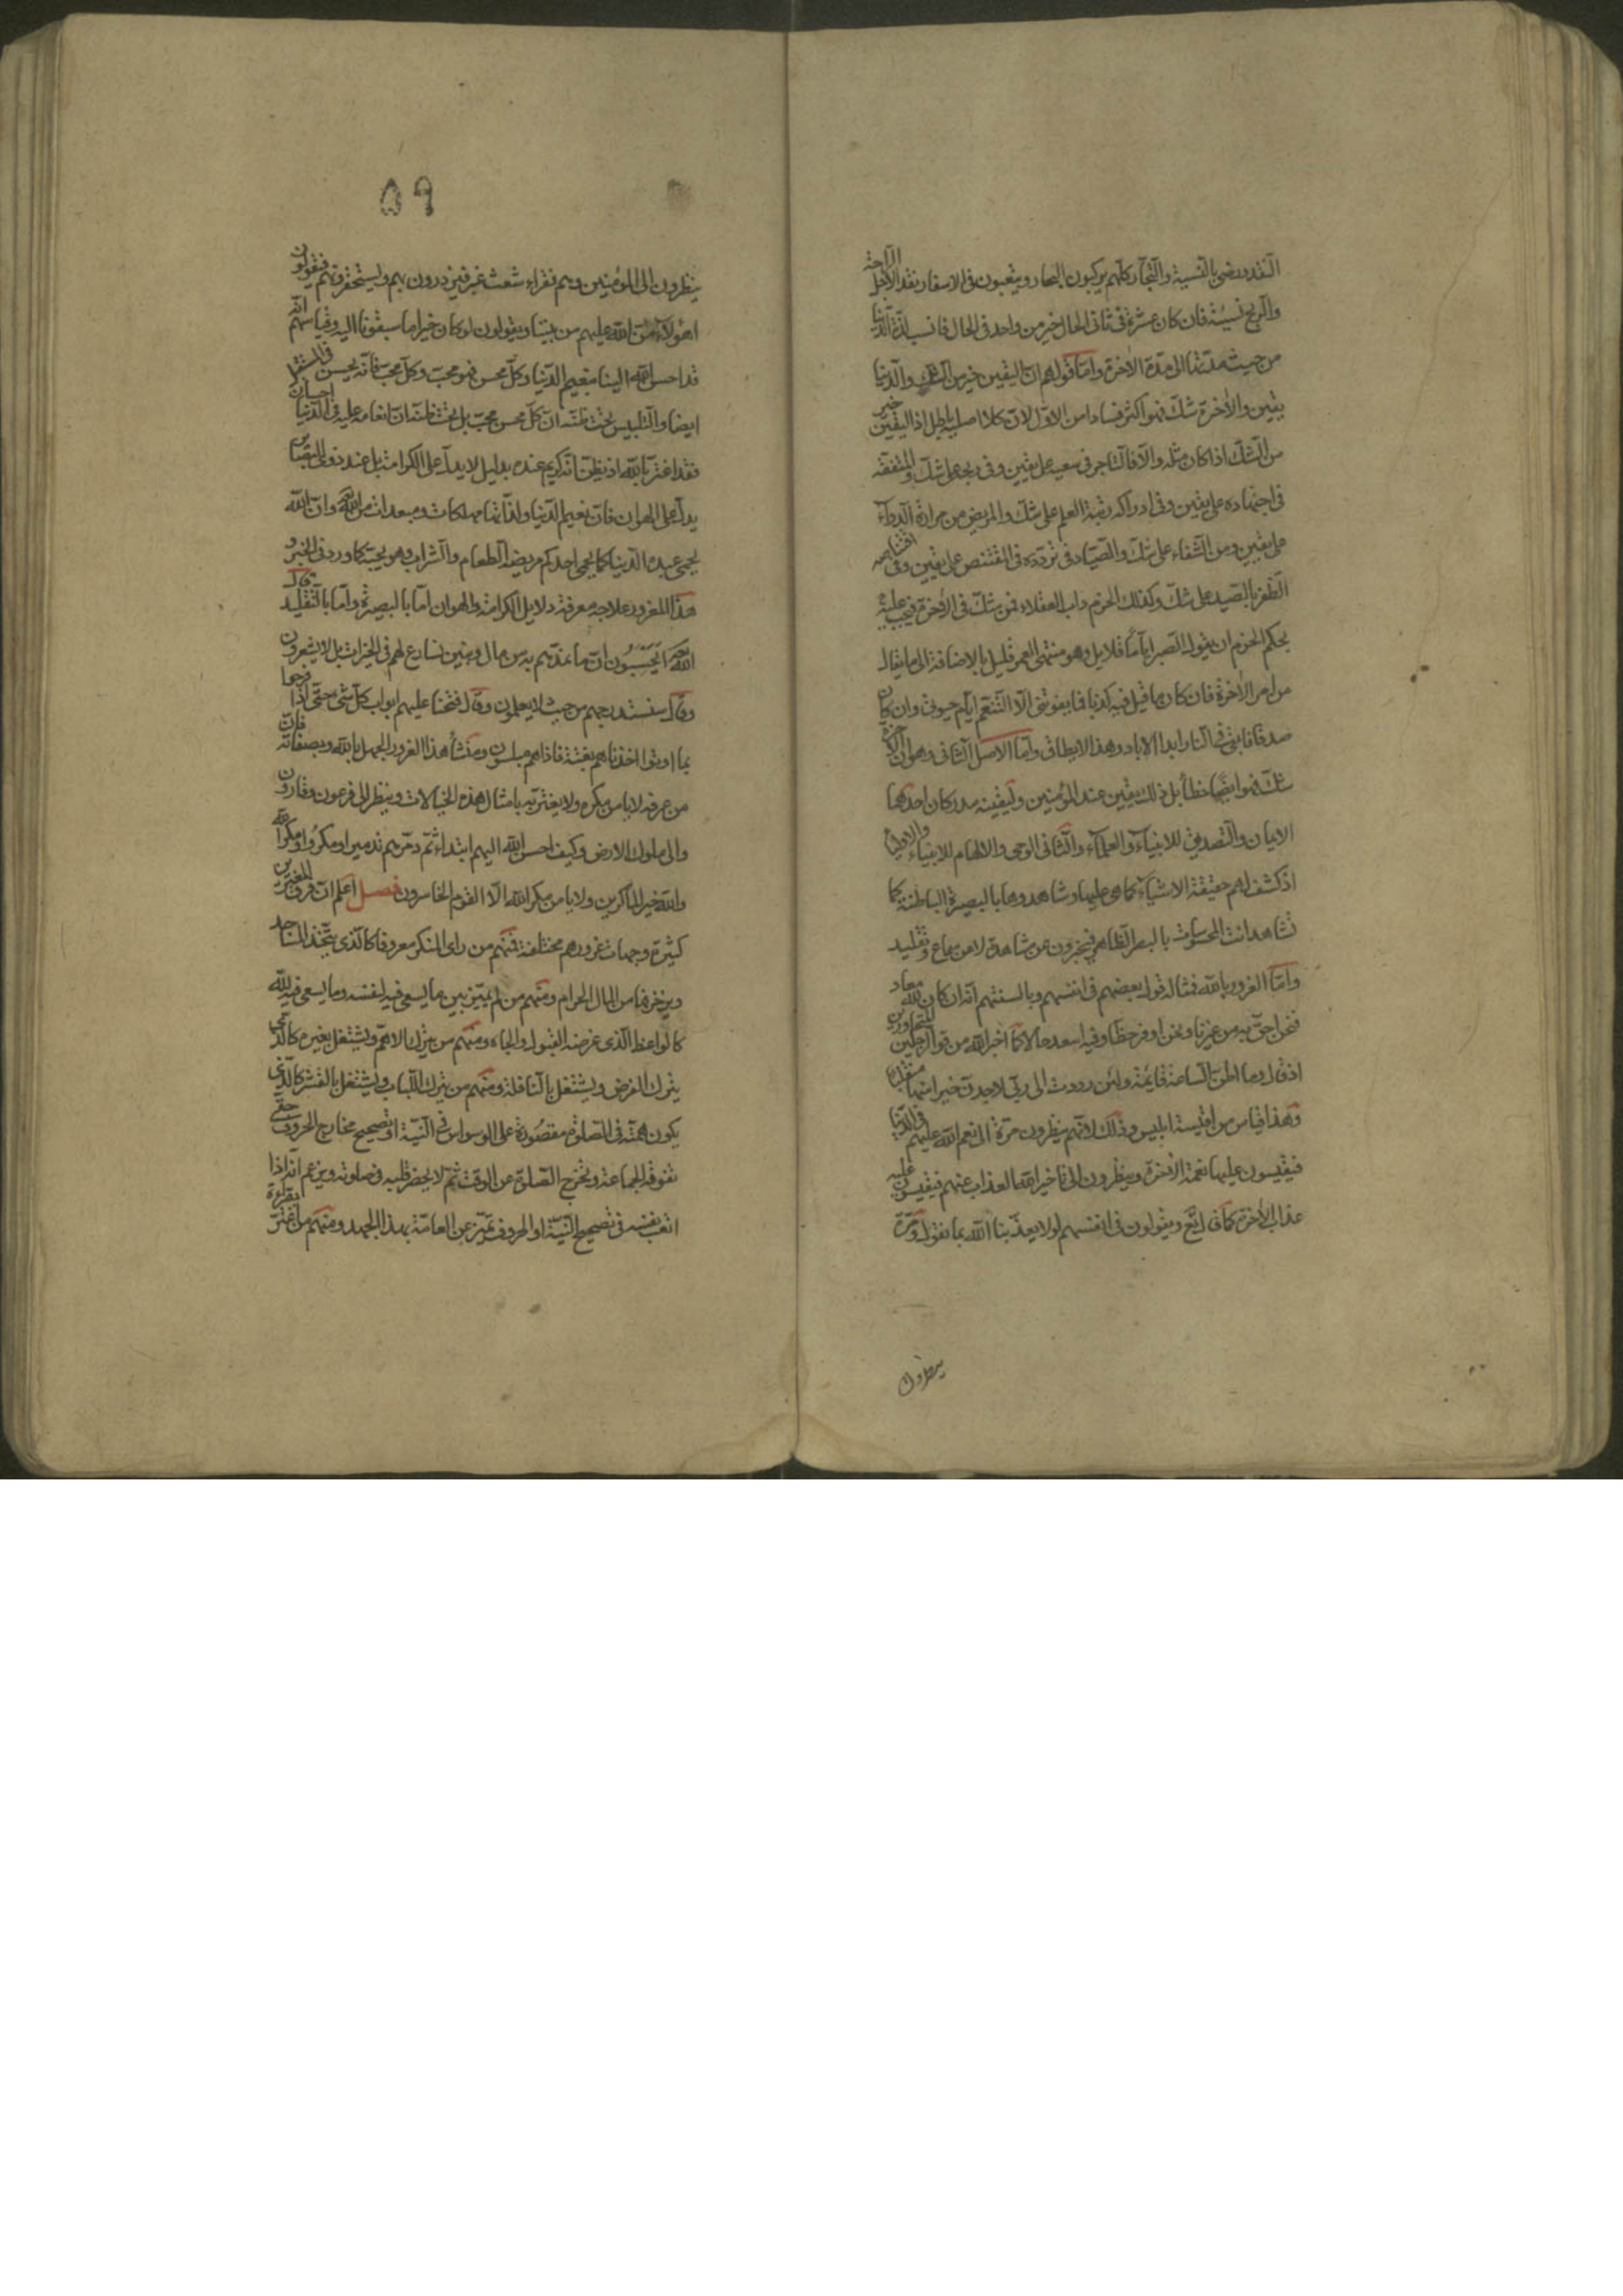 النقد ورضى بالنسية والتجار كلهم يركبون البحار ويتعبون فى الاسفار نقدا لاجل الراحة
والربح نسيئة فان كان عشرة فى ثانى الحال خير من واحد فى الحال فانسب لذة الدنيا
من حيث مدتها الى مدة الاخرة واما قولهم ان اليقين خير من الشك والدنيا
يقين والاخرة شك فهو اكثر فسادا من الاول لان كلا اصليه باطل اذ اليقين خير
من الشك اذا كان مثله والا فالتاجر فى سعيه على يقين وفى ربحه على شك والمتفقه
فى اجتهاده على يقين وفى ادراكه رتبة العلم على شك والمريض من مرارة الدواء
على يقين ومن الشفاء على شك والصياد فى تردده فى المقتنص على يقين وفى
الظفر بالصيد على شك وكذلك الحزم داب العقلاء فمن شك فى الاخرة فيجب عليه
بحكم الحزم ان يقول الصبر اياما قلايل وهو منتهى العمر قليل بالاضافة الى ما يقال
من امر الاخرة فان كان ما قيل فيه كذبا فما يفوتنى الا التنعم ايام حيوتى وان كان
صدقا فابقى فى النار ابدا الاباد وهذا لا يطاق واما الاصل الثانى وهو ان الاخرة
شك فهو ايضا خطأ بل ذلك يقين عند المؤمنين وليقينه مدركان احدهما
الايمان والتصديق للانبياء والعلماء والثانى الوحى والالهام للانبياء والاولياء
اذ كشف لهم حقيقة الاشياء كما هى عليها وشاهدوها بالبصيرة الباطنة كما
تشاهد انت المحسوسات بالبصر الظاهر فيخبرون عن مشاهدة لا عن سماع وتقليد
واما الغرور بالله فمثاله قول بعضهم فى انفسهم وبالسنتهم انه ان كان لله معاد
فنحن احق به من غيرنا ونحن اوفر حظا وفيه اسعد حالا كما اخبر الله من قول الرجلين المتحاورين
اذ قال وما اظن الساعة قايمة ولئن رددت الى ربى لاجدن خيرا منها منقلبا
وهذا قياس من اقيسة ابليس وذلك لانهم ينظرون مرة الى نعم الله عليهم فى الدنيا
فيقيسون عليها نعمة الاخرة وينظرون الى تاخير الله العذاب عنهم فيقيسون عليه
عذاب الاخرة كما قال تع ويقولون فى انفسهم لولا يعذبنا الله بما نقول ومرة
ينظرون
٥٩
ينظرون الى المؤمنين وهم فقراء شعث غبر فيزدرون بهم ويستحقرونهم فيقولون
اهؤلاء من الله عليهم من بيننا ويقولون لو كان خيرا ما سبقونا اليه وقياسهم انه
قد احسن الله الينا بنعيم الدنيا وكل محسن فهو محب وكل محب فانه يحسن فى المستقبل
ايضا والتلبيس تحت ظنه ان كل محسن محب بل تحت ظنه ان انعامه عليه فى الدنيا احسان
فقد اغتر بالله اذ يظن انه كريم عنده بدليل لا يدل على الكرامة بل عند ذوى البصاير
يدل على الهوان فان نعيم الدنيا ولذاتها مهلكات ومبعدات من الله وان الله
يحمى عبده الدنيا كما يحمى احدكم مريضه الطعام والشراب وهو يحبه كما ورد فى الخبر و
هذا المغرور علاجه معرفة دلايل الكرامة والهوان اما بالبصيرة واما بالتقليد قال
الله ايحسبون ان ما نمدهم به من مال وبنين نسارع لهم فى الخيرات بل لا يشعرون
وقال سنستدرجهم من حيث لا يعلمون وقال فتحنا عليهم ابواب كل شئ حتى اذا فرحوا
بما اوتوا اخذناهم بغتة فاذا هم مبلسون ومنشأ هذا الغرور الجهل بالله وبصفاته فان
من عرفه لا يامن مكره ولا يغتر به بامثال هذه الخيالات وينظر الى فرعون وقارون
والى ملوك الارض وكيف احسن الله اليهم ابتداء ثم دمرهم تدميرا ومكروا ومكر الله
والله خير الماكرين ولا يامن مكر الله الا القوم الخاسرون فصل اعلم ان فرق المغترين
كثيرة وجهات غرورهم مختلفة فمنهم من راى المنكر معروفا كالذى يتخذ المساجد
ويزخرفها من المال الحرام ومنهم من لم يميز بين ما يسعى فيه لنفسه وما يسعى فيه لله
كالواعظ الذى غرضه القبول والجاه ومنهم من يترك الاهم ويشتغل بغيره كالذى
يترك الفرض ويشتغل بالنافلة ومنهم من يترك اللباب ويشتغل بالقشر كالذى
يكون همته فى الصلوة مقصورة على الوسواس فى النية او تصحيح مخارج الحروف حتى
تفوته الجماعة ويخرج الصلوة عن الوقت ثم لا يحضر قلبه فى صلوته ويزعم انه اذا
اتعب نفسه فى تصحيح النية او الحروف تميز عن العامة بهذا الجهد ومنهم من اغتر بقراءة